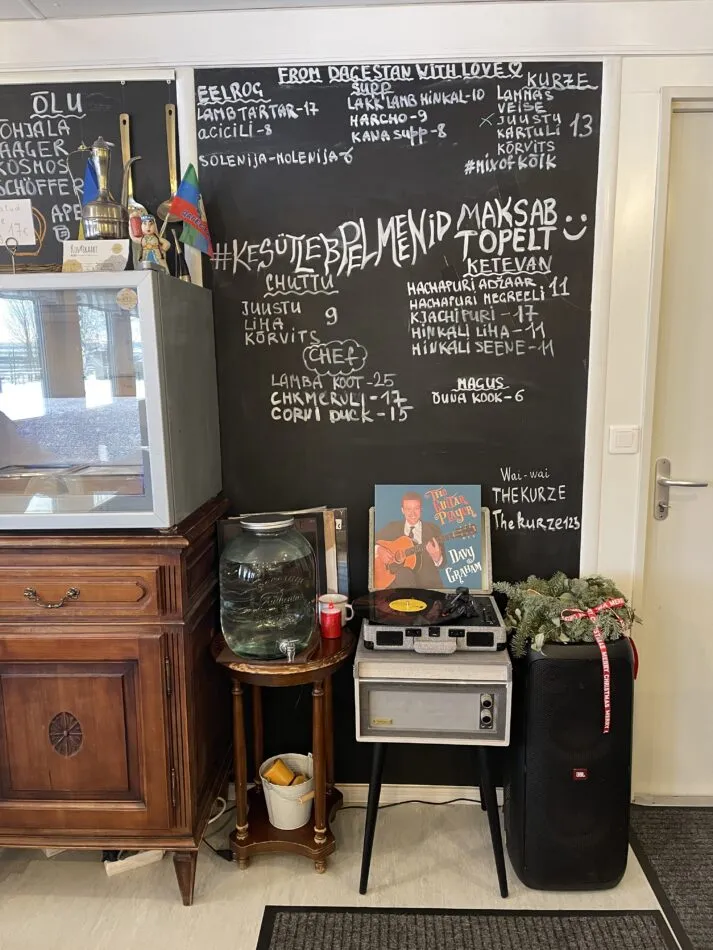 ÕLU
OHJALA
AAGER
KOSMOS
SCHÖFFER
APE
17€
FROM DAGESTAN WITH LOVE
EELROG
LAMBTARTAR-17
ACICILI-8
SOLENIJA-MOLENIJA-6
SUPP
LAKK LAMB HINKAL-10
HARCHO-9
KANA SUPP-8
KURZE
LAMMAS
VEISE
JUUSTU
KARTULI 13
KÕRVITS
#MIXOFKÕIK
#KESÜTLEBPELMENID MAKSAB
TOPELT :)
CHUTTU
JUUSTU
LIHA 9
KÕRVITS
KETEVAN
HACHAPURI ADŽAAR 11
HACHAPURI MEGREELI
KJACHIPURI-17
HINKALI LIHA-11
HINKALI SEENE-11
CHEF
LAMBA KOOT-25
CHKMERULI-17
CORVI DUCK-15
MAGUS
ÕUNA KOOK-6
Wai-wai
THEKURZE
Thekurze123
The
Guitar
Player
Davy
Graham
JBL